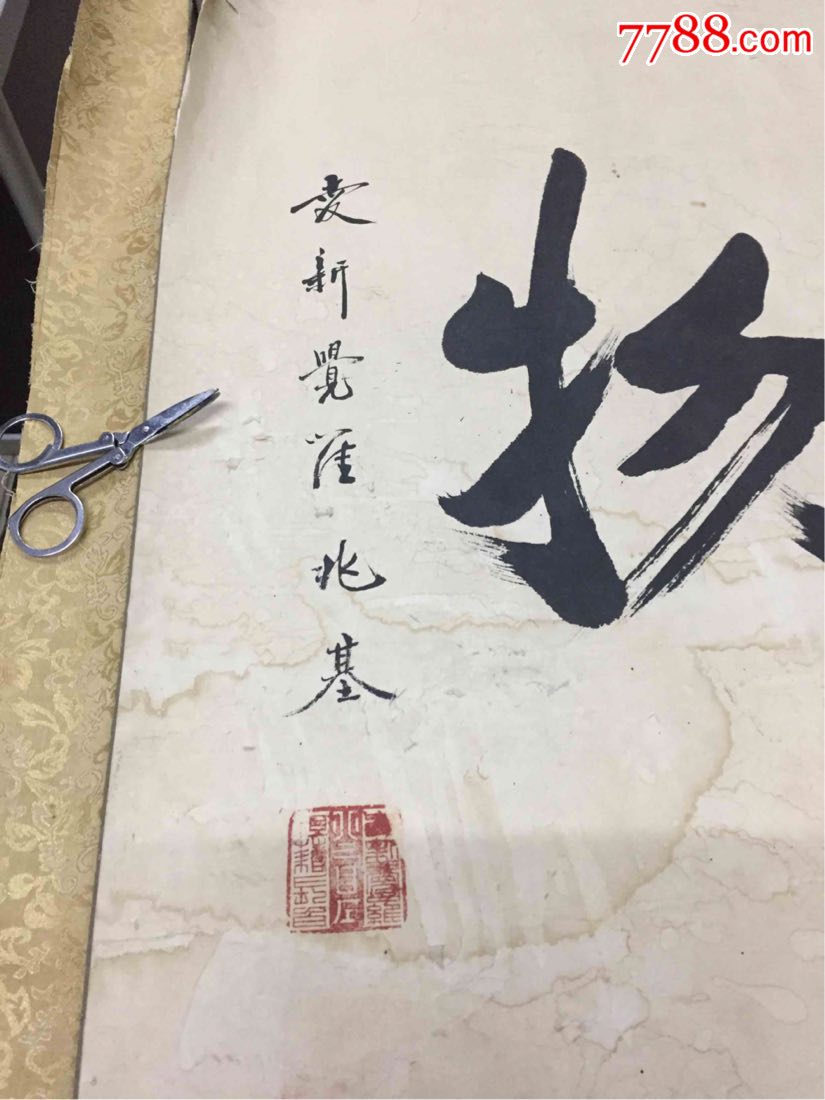 7788.com
物
愛新覺羅兆基